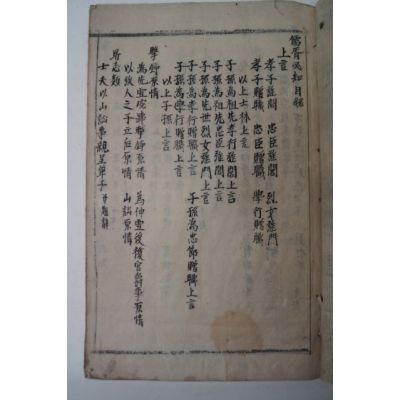 儒胥必知目錄
上言
孝子旌閭 忠臣旌閭 烈女旌門
孝子贈職 忠臣贈職 學行贈職
以上士林上言
子孫為祖先孝行旌閭上言
子孫為祖先忠臣旌閭上言
子孫為先世烈女旌門上言
子孫為孝行贈職上言 子孫為忠節贈職上言
子孫為學行贈職上言
以上子孫上言
擊錚原情
為先至冤事擊錚原情 為伸雪後復官爵事原情
以次人之子立后原情 山訟原情
所志類
士夫以山訟事親呈單子